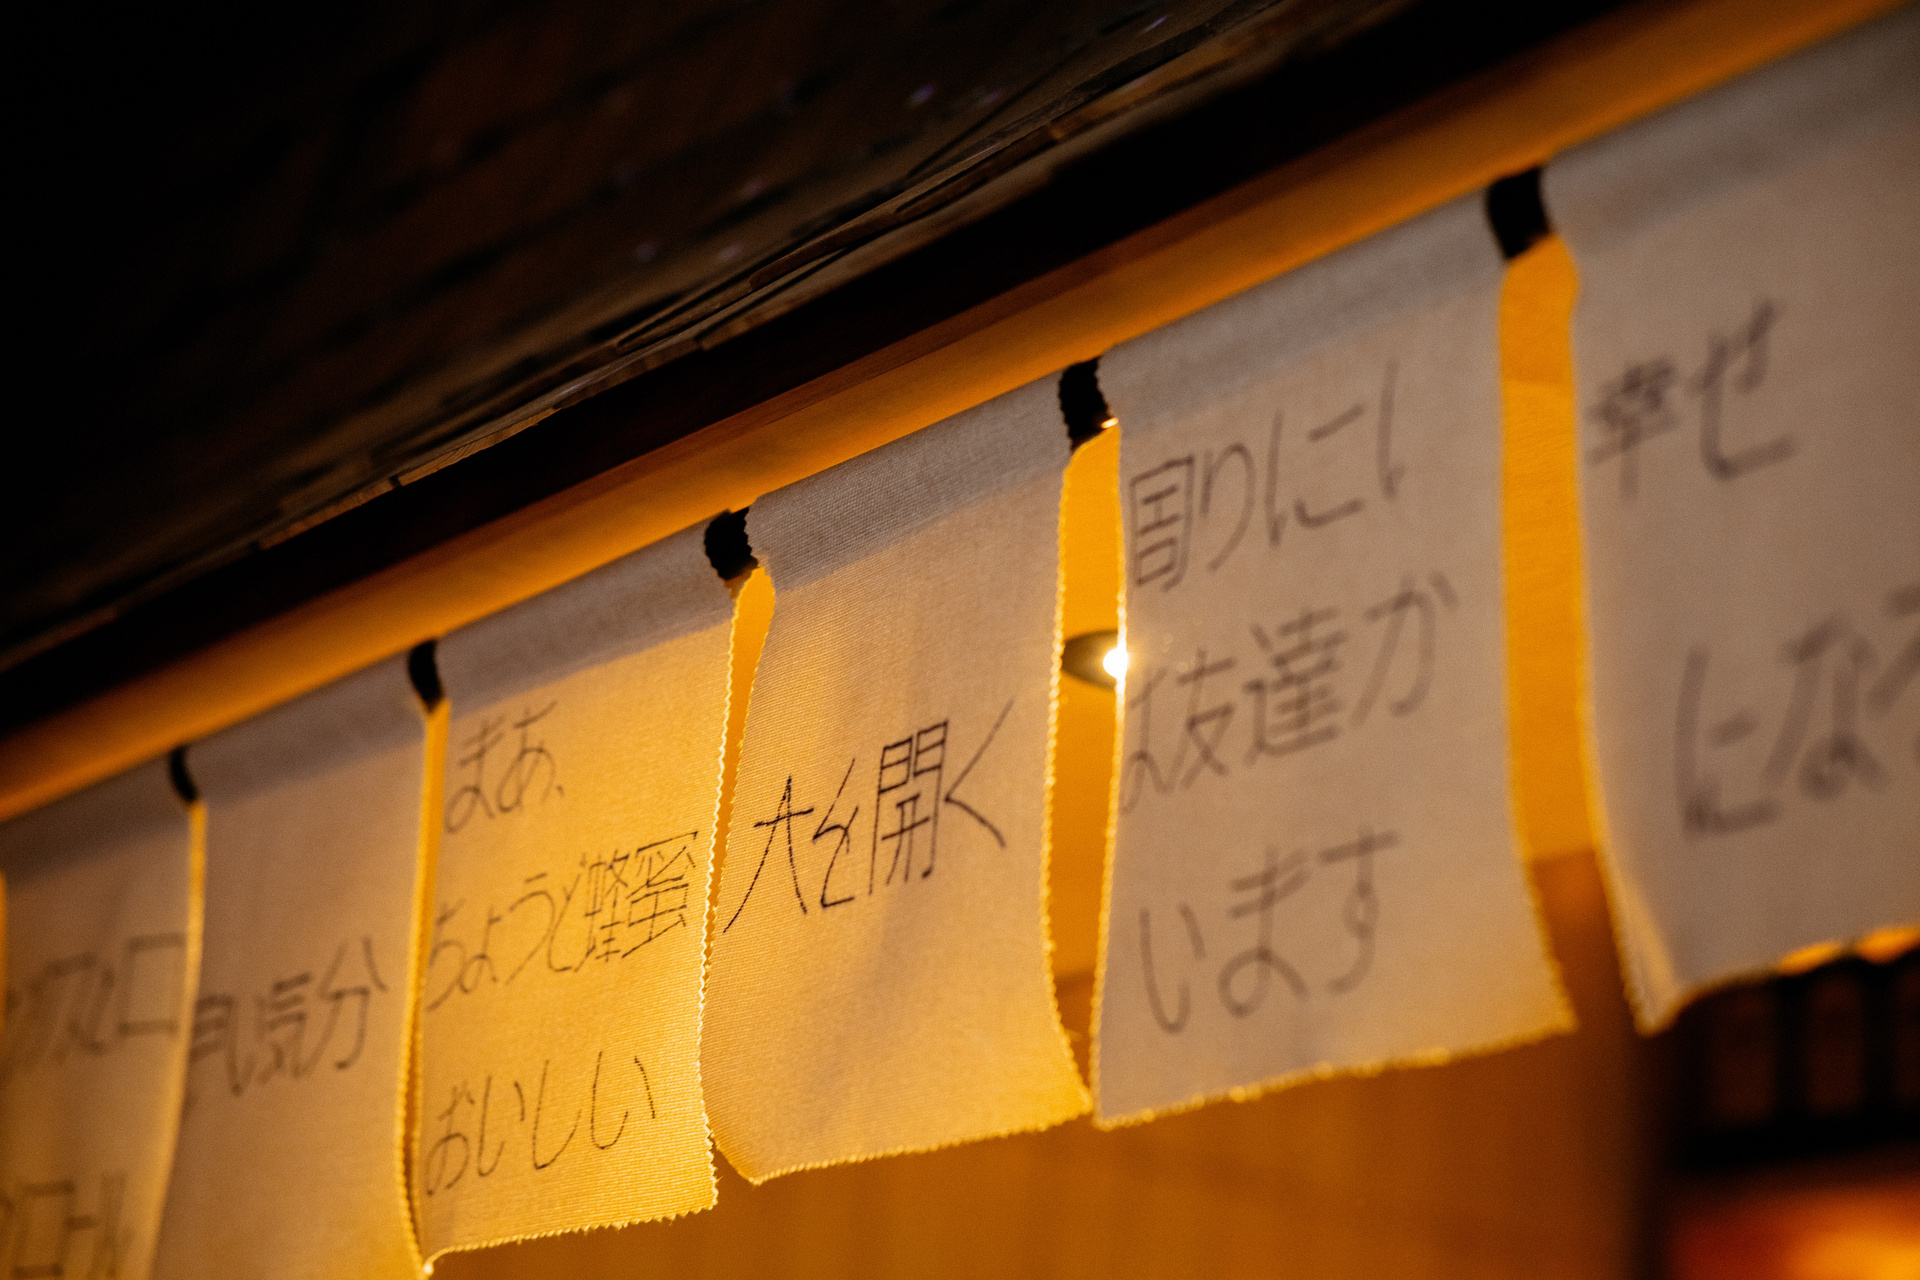 気分
まあ、
ちょうど蜂蜜
おいしい
大を開く
周りに
達か
います
幸せ
にな